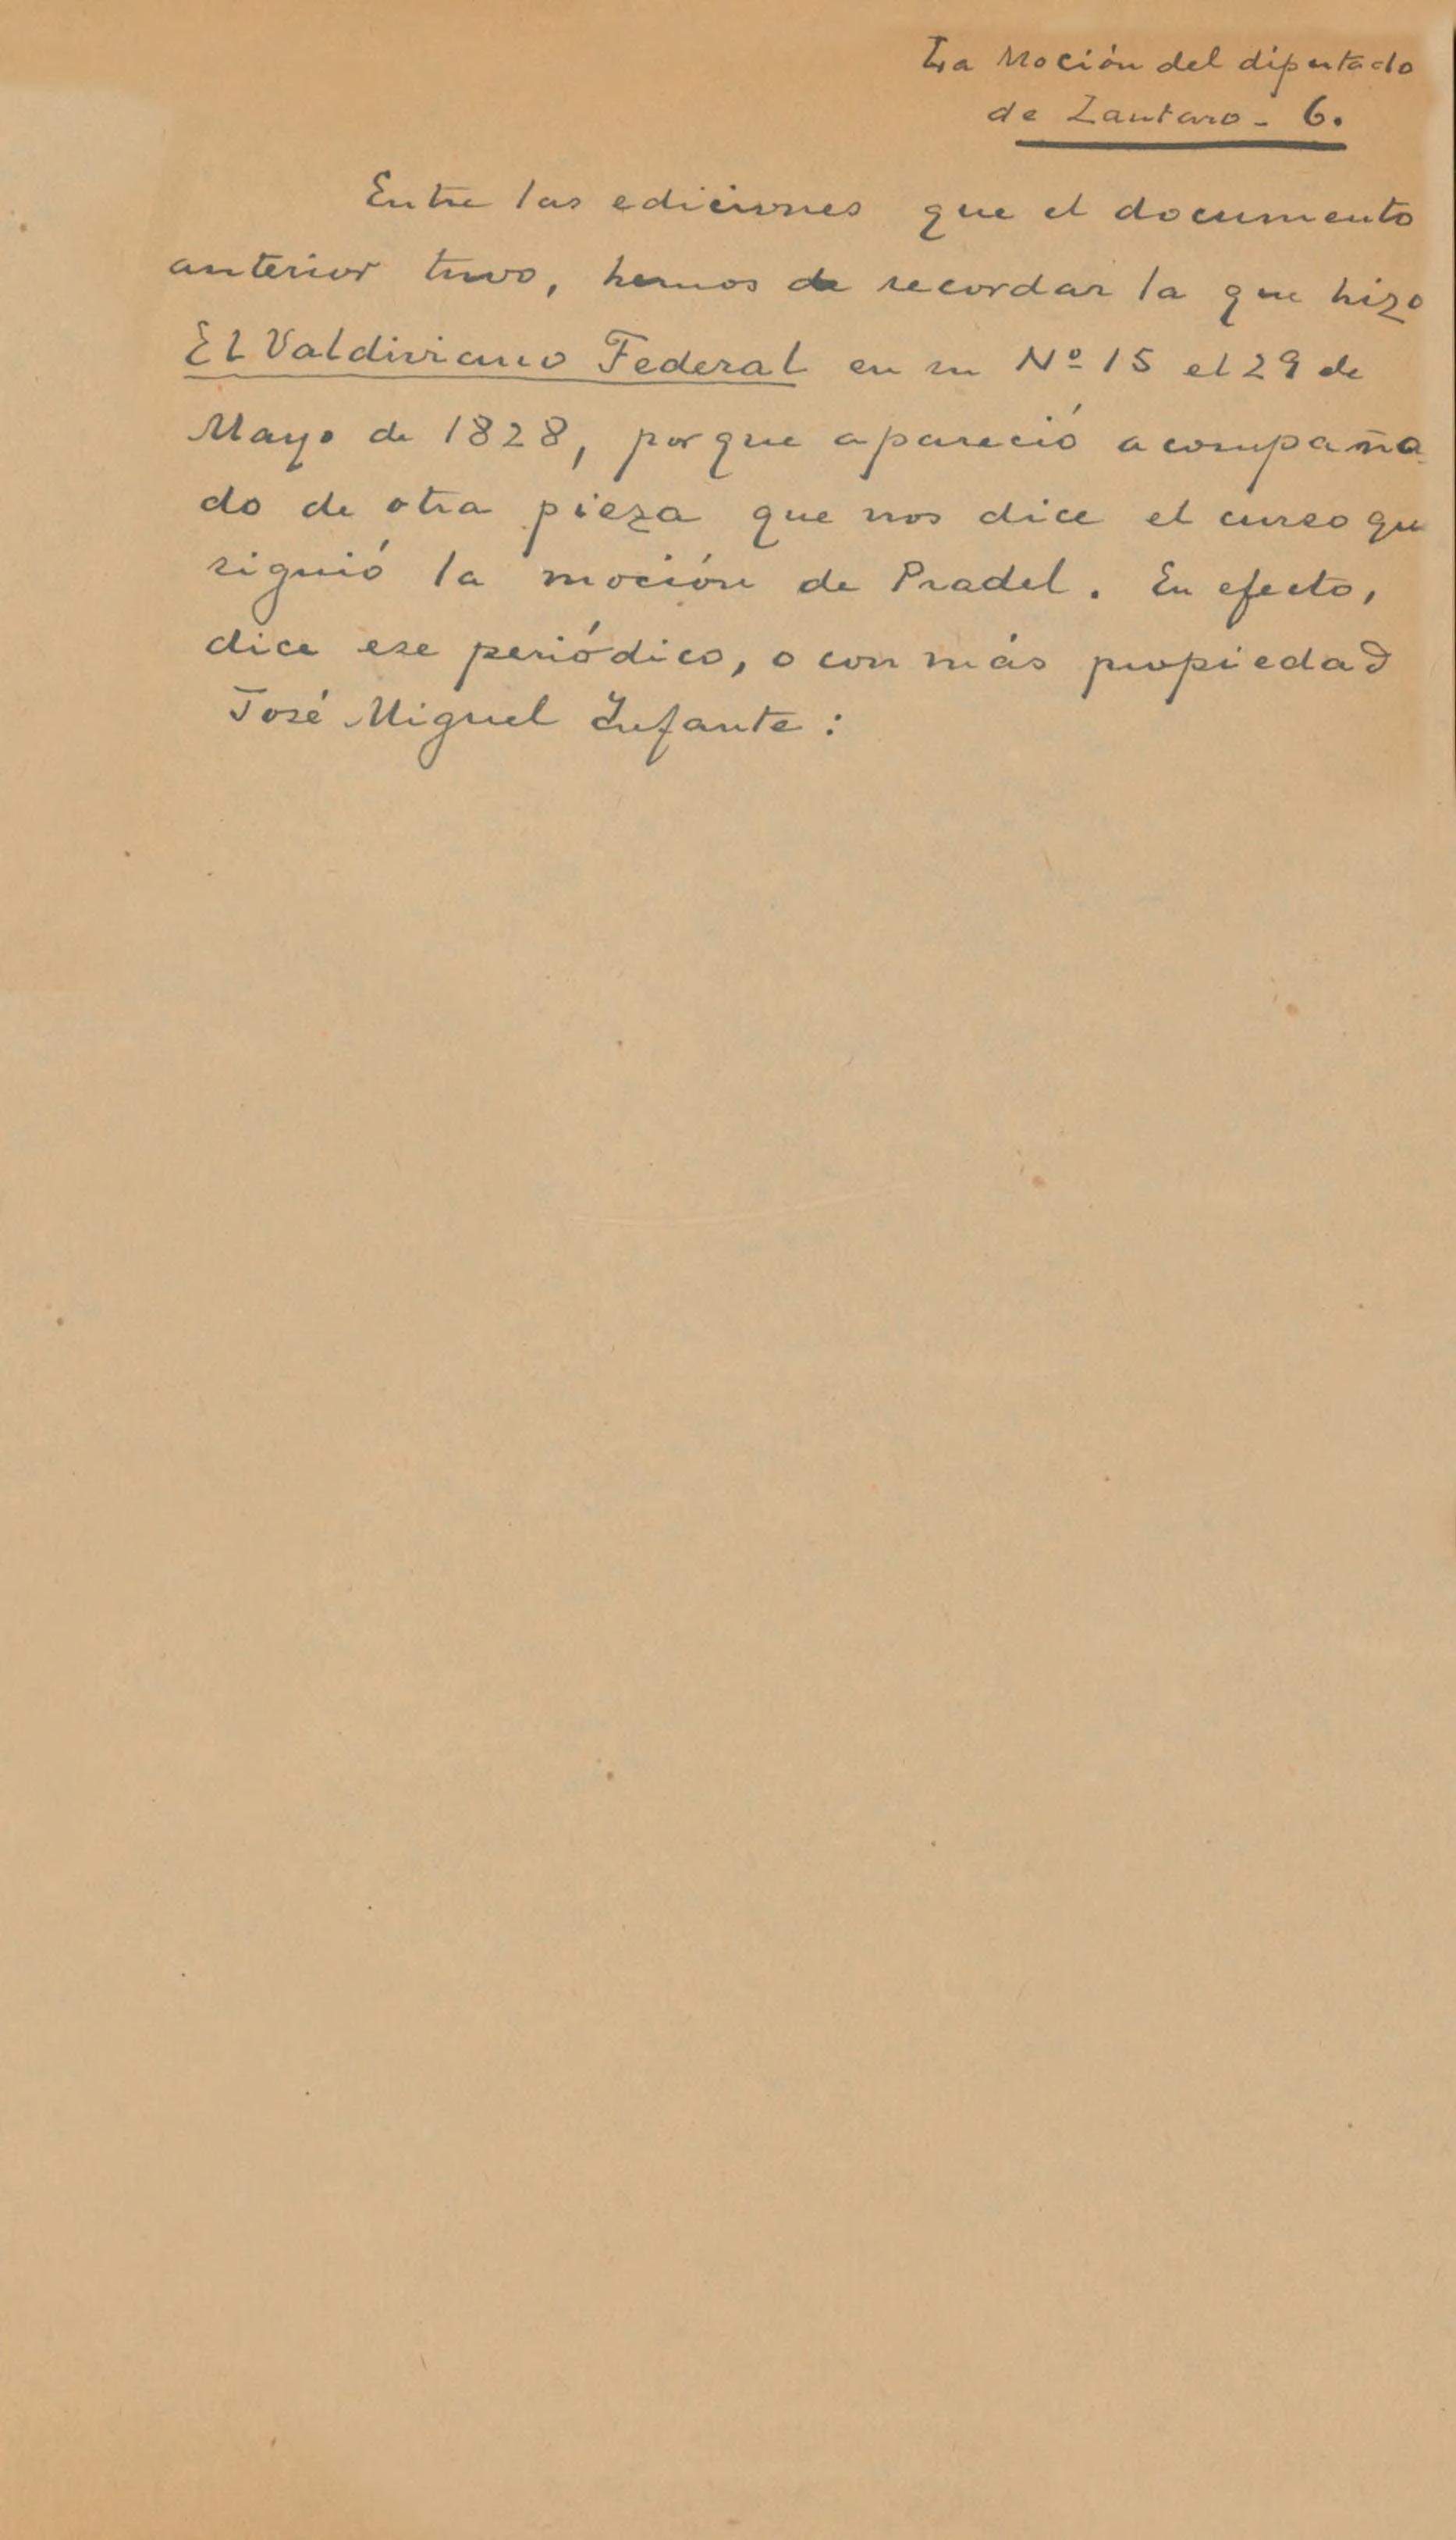 La Moción del diputado
de Lautaro - 6.
Entre las ediciones que el documento
anterior tuvo, hemos de recordar la que hizo
El Valdiviano Federal en su Nº 15 el 29 de
Mayo de 1828, porque apareció acompaña
do de otra pieza que nos dice el curso que
siguió la moción de Pradel. En efecto,
dice ese periódico, o con más propiedad
José Miguel Infante: